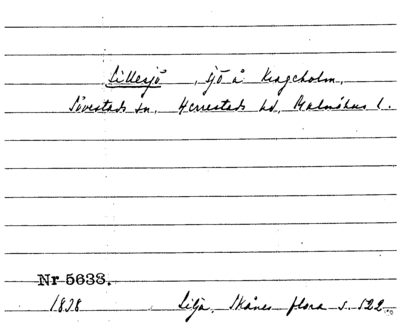 Lillesjö, sjö å Krageholm,
Sövestads sn. Herrestads hd, Malmöhus l.
Nr 5638.
1838 Lilja, Skånes flora s. 522